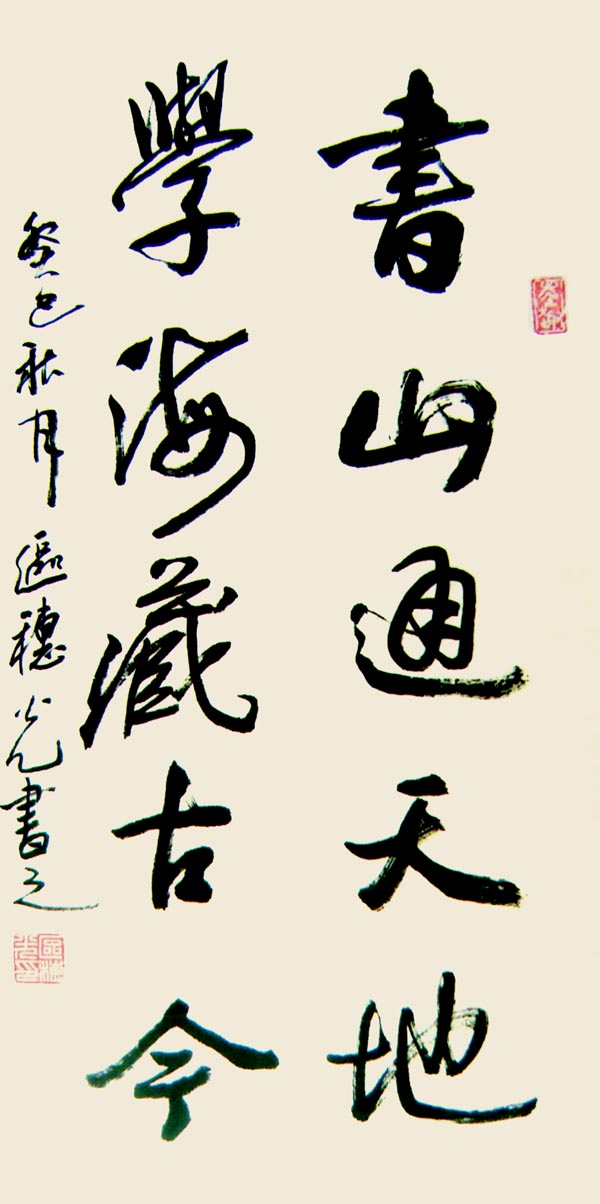 書山通天地
學海藏古今
癸巳秋月區穗光書之